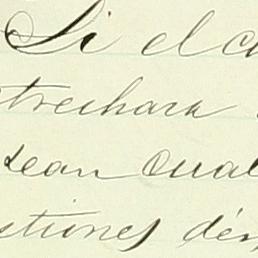 Si el c
trechara
sean cual
stiones dé